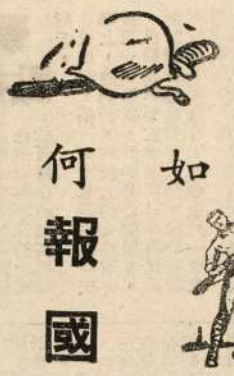 如
何報國